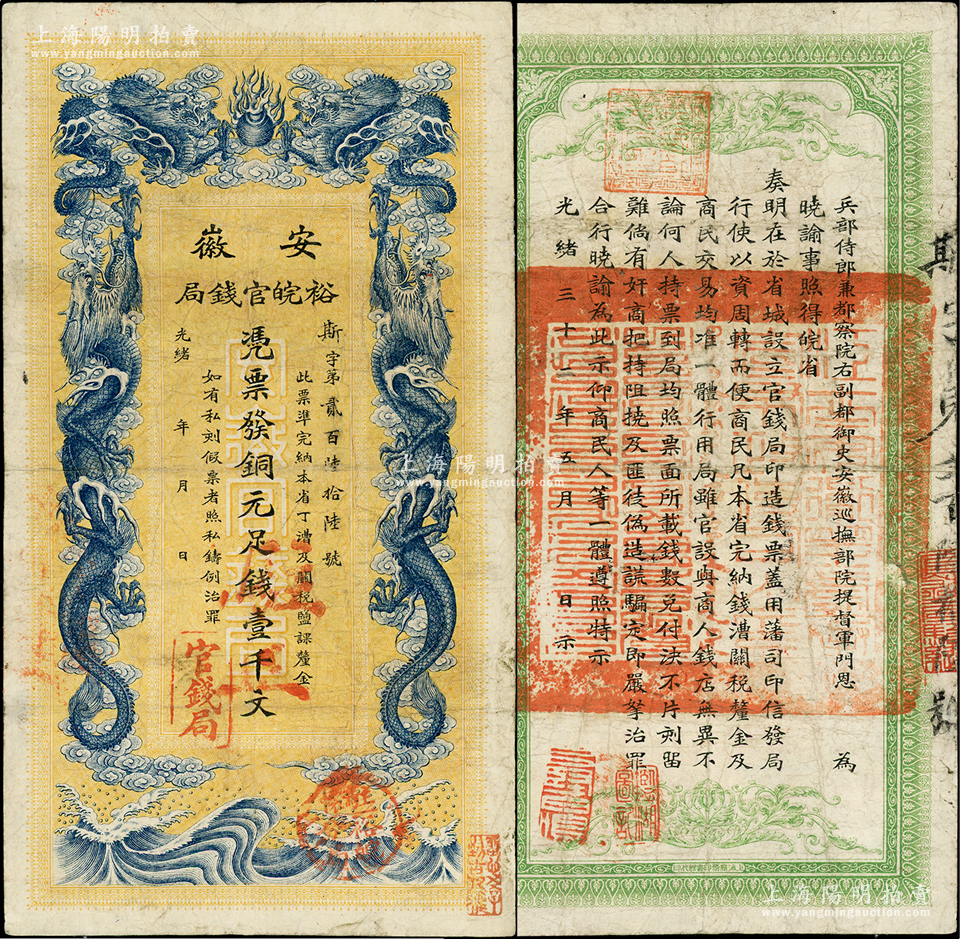 上海陽明拍賣
www.yangmingauction.com
安徽
裕皖官錢局
斯字第貳百陸拾陸號
此票準完納本省丁漕及關稅鹽課釐金
憑票發銅元足錢壹千文
如有私刻假票者照私鑄例治罪
光緒 年 月 日
官錢局
兵部侍郎兼都察院右副都御史安徽巡撫部院提督軍門恩 為
曉諭事照得皖省
奏明在於省城設立官錢局印造錢票蓋用藩司印信發局
行使以資周轉而便商民凡本省完納錢漕關稅釐金及
商民交易均准一體行用局雖官設與商人錢店無異不
論何人持票到局均照票面所載錢數兌付決不片刻留
難倘有奸商把持阻撓及匪徒偽造誆騙定即嚴拏治罪
合行曉諭為此示仰商民人等一體遵照特示
光緒三十二年五月 日示
上海陽明拍賣
www.yangmingauction.com
上海陽明拍賣
www.yangmingauction.com